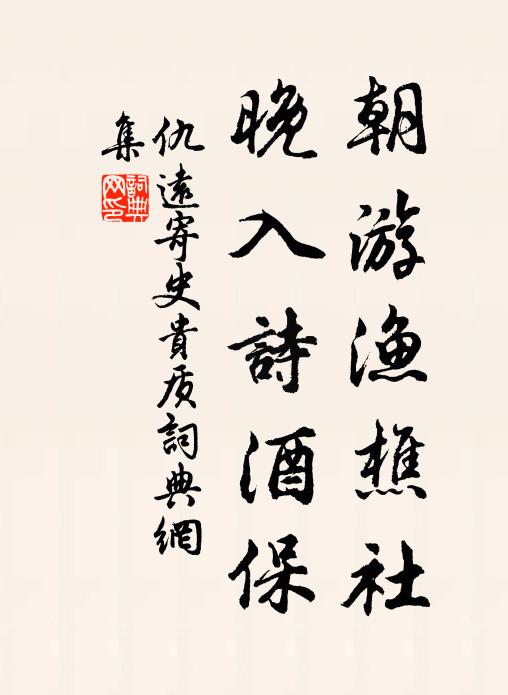 朝游漁樵社
晚入詩酒保
仇遠寄史貴质詞典網
集
詞典
网印